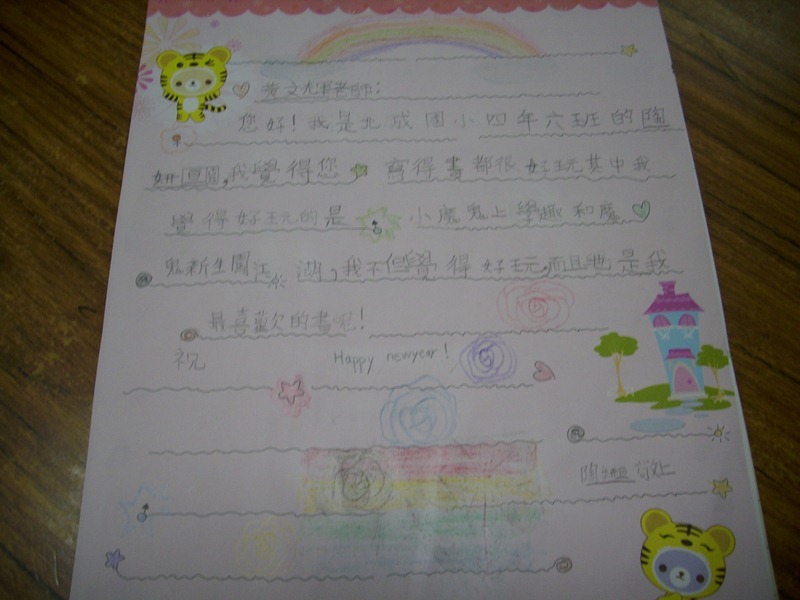 文光軍老師：
您好！我是北成國小四年六班的陶
我覺得您 寫得書都很好玩其中我
覺得好玩的是 小魔鬼上學趣和魔
鬼新生闖江湖，我不但覺得好玩，而且牠是我
最喜歡的書呢！
祝 Happy newyear！
陶 敬上